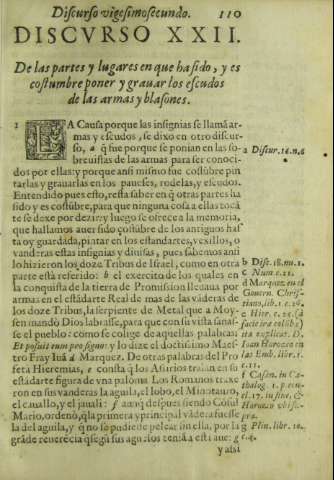 Discurso vigesimosecundo. 110
DISCVRSO XXII.
De las partes y lugares en que ha sido, y es
costumbre poner y grauar los escudos
de las armas y blasones.
1 LA Causa porque las insignias se llamã ar-
mas y escudos, se dixo en otro discur-
so, a q̃ fue porque se ponian en las so-
breuistas de las armas para ser conoci-
dos por ellas: y porque ansi mismo fue costũbre pin
tarlas y grauarlas en los paueses, rodelas, y escudos.
Entendido pues esto, resta saber en q̃ otras partes ha
sido y es costũbre, para que ninguna cosa a ellas tocã
te se dexe por dezir: y luego se ofrece a la memoria,
que hallamos auer sido costũbre de los antiguos has
ta oy guardada, pintar en los estandartes, vexillos, o
vanderas estas insignias y diuisas, pues sabemos ansi
lo hizieron los doze Tribus de Israel, como en otra
parte està referido: b el exercito de los quales en
la conquista de la tierra de Promission lleuaua por
armas en el estãdarte Real de mas de las vãderas de
los doze Tribus, la serpiente de Metal que a Moy-
sen mandò Dios labrasse, para que con su vista sanas-
se el pueblo: como se colige de aquellas palabras:
Et posuit eum pro signo: y lo dize el doctissimo Maes-
tro Fray Iuã d Marquez. De otras palabras del Pro
feta Hieremias, e consta q̃ los Asirios traian en su
estãdarte figura de vna paloma. Los Romanos traxe
ron en sus vanderas la aguila, el lobo, el Minotauro,
el cauallo, y el jauali: f aunq̃ despues siendo Cõsul
Mario, ordenò, q̃ la primera y principal vãdera fuesse
la del aguila, y q̃ no se pudiesse pelear sin ella, por la
grãde reuerẽcia q̃ segũ sus agueros teniã a esta aue: g
y assi
a Discur. 14. n. 6
b Disc. 18. nu. 1.
c Num. c. 21.
d Marquez. en el
Gouern. Chris-
tiano, lib. 1. c. 26.
e Hier. c. 25. (à
facie iræ colũbæ)
ita explicat. D.
Ioan Horozco en
las Emb. libr. 1.
c. 11.
f Casan. in Ca-
thalog. 1. p. con-
cl. 17. in fine, &
Horozco vbi su-
pra.
g Plin. libr. 10.
c. 4.